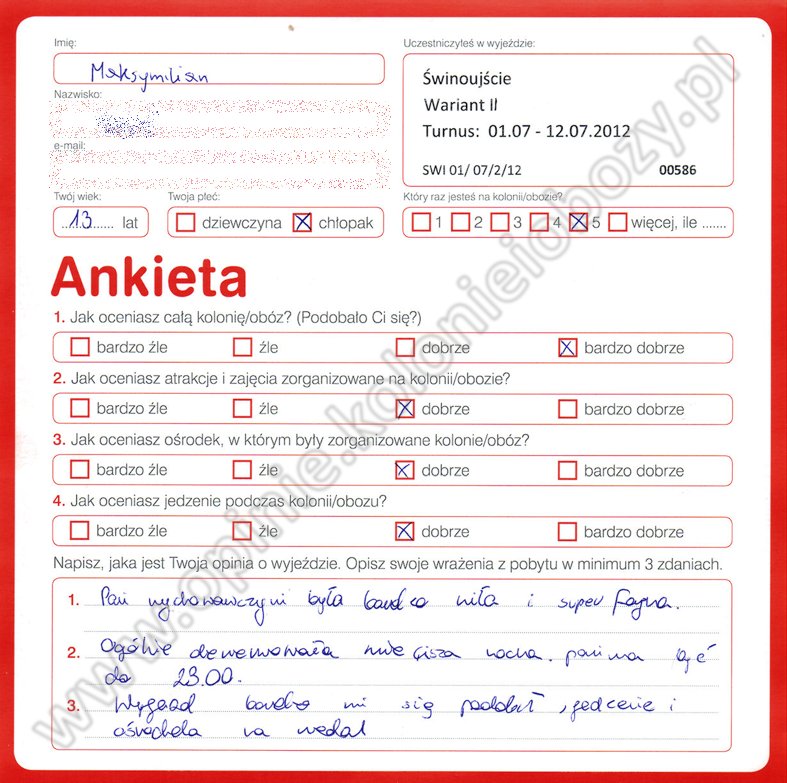 Imię:
Maksymilian
Nazwisko:
e-mail:
Twój wiek:
13 lat
Twoja płeć:
dziewczyna chłopak
Uczestniczyłeś w wyjeździe:
Świnoujście
Wariant II
Turnus: 01.07 - 12.07.2012
SWI 01/ 07/2/12 00586
Który raz jesteś na kolonii/obozie?
1 2 3 4 5 więcej, ile .......
Ankieta
1. Jak oceniasz całą kolonię/obóz? (Podobało Ci się?)
bardzo źle źle dobrze bardzo dobrze
2. Jak oceniasz atrakcje i zajęcia zorganizowane na kolonii/obozie?
bardzo źle źle dobrze bardzo dobrze
3. Jak oceniasz ośrodek, w którym były zorganizowane kolonie/obóz?
bardzo źle źle dobrze bardzo dobrze
4. Jak oceniasz jedzenie podczas kolonii/obozu?
bardzo źle źle dobrze bardzo dobrze
Napisz, jaka jest Twoja opinia o wyjeździe. Opisz swoje wrażenia z pobytu w minimum 3 zdaniach.
1. Pani wychowawczyni była bardzo miła i super fajna.
2. Ogólnie denerwowała mnie cisza nocna. być
do 23.00.
3. Wyjazd bardzo mi się podobał, jedzenie i
na medal
www.opinie.kolonieiobozy.pl